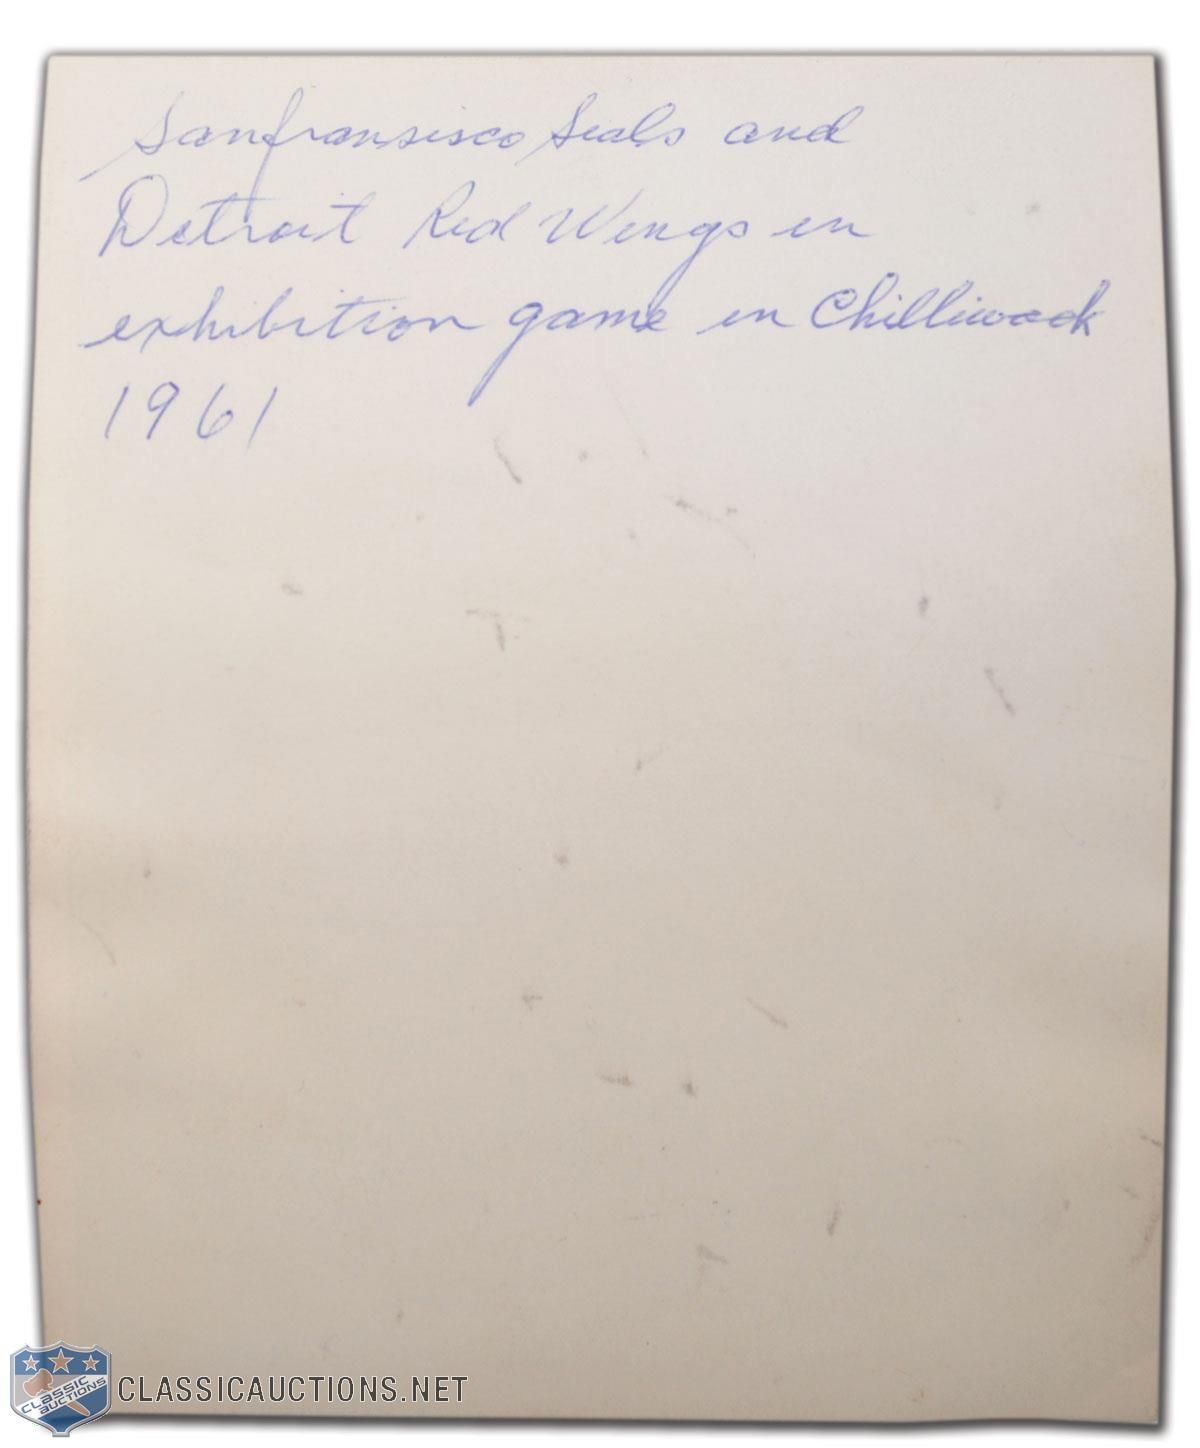 Sanfransisco Seals and
Detroit Red Wings in
exhibition game in Chilliwack
1961
CLASSIC
AUCTIONS
CLASSICAUCTIONS.NET